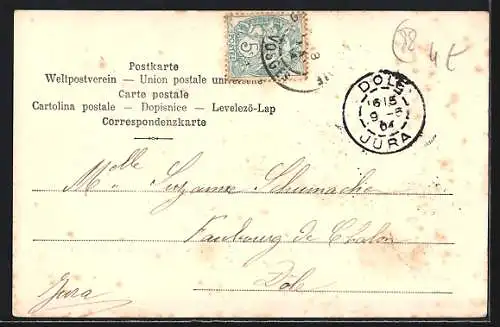 Postkarte
Weltpostverein – Union postale universelle
Carte postale
Cartolina postale – Dopisnice – Levelező-Lap
Correspondenzkarte
5
VOSGES
82
4 €
DOLE
6 15
9 -6
04
JURA
Melle Suzanne Schumacher
Faubourg de Chalon
Dole
Jura